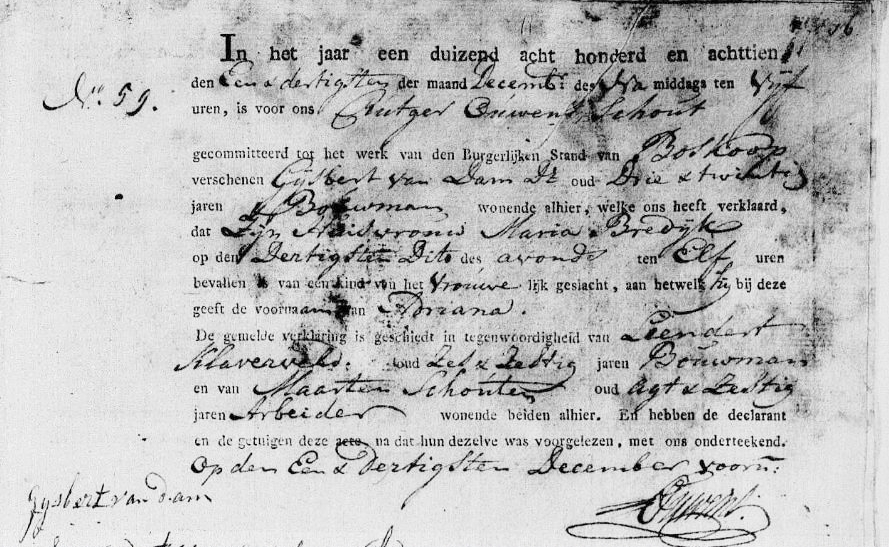 16
In het jaar een duizend acht honderd en achttien
den Een & dertigsten der maand Decembr. des Na middags ten Vijf
No. 59.
uren, is voor ons Rutger Ouwens Schout
gecommitteerd tot het werk van den Burgerlijken Stand van Boskoop
verschenen Gijsbert van Dam Dz oud Drie & twintig
jaren Bouwman wonende alhier, welke ons heeft verklaard,
dat Zijn Huisvrouw Maria Bredijk
op den Dertigsten Dito des avonds ten Elf uren
bevallen is van een kind van het Vrouwe lijk geslacht, aan hetwelk hij bij deze
geeft de voornaam van Adriana.
De gemelde verklaring is geschiedt in tegenwoordigheid van Leendert
Klaverveld oud Zes & Zestig jaren Bouwman
en van Maarten Schouten oud Agt & Zestig
jaren Arbeider wonende beiden alhier. En hebben de declarant
en de getuigen deze acte, na dat hun dezelve was voorgelezen, met ons onderteekend.
Op den Een & Dertigsten December voorn:
Gijsbert van Dam